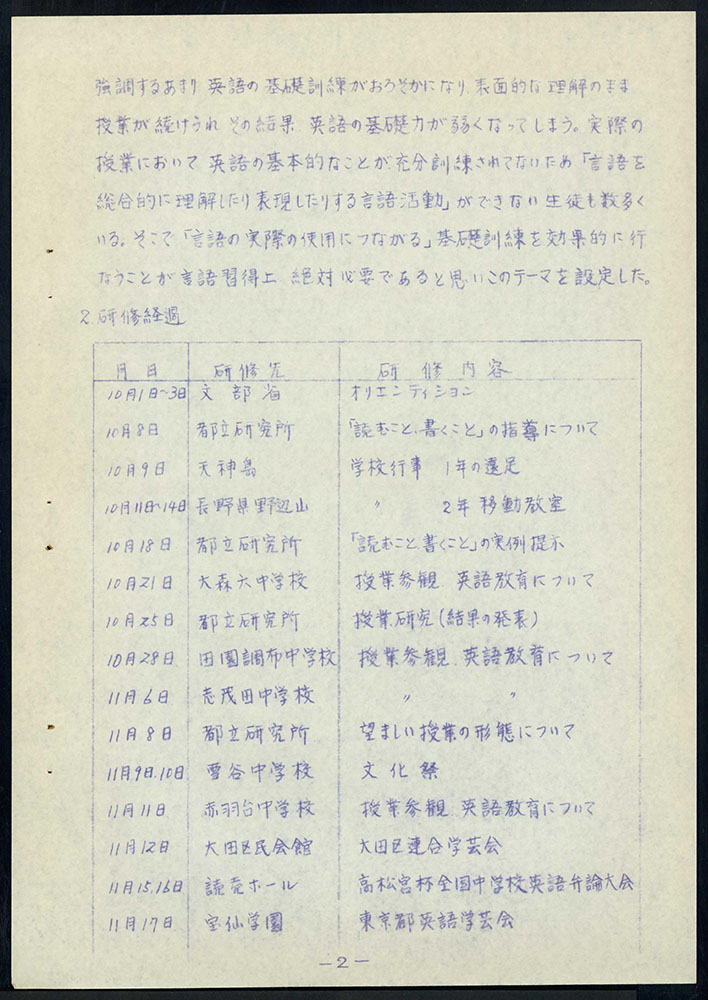 強調するあまり 英語の基礎訓練がおろそかになり 表面的な理解のまま
授業が続けられ その結果 英語の基礎力が弱くなってしまう。実際の
授業において 英語の基本的なことが充分訓練されてないため「言語を
総合的に理解したり表現したりする言語活動」ができない生徒も数多く
いる。そこで「言語の実際の使用につながる」基礎訓練を効果的に行
なうことが言語習得上 絶対必要であると思いこのテーマを設定した。
2. 研修経過
月日 研修先 研修内容
10月1日~3日 文部省 オリエンティション
10月8日 都立研究所 「読むこと、書くこと」の指導について
10月9日 天神島 学校行事 1年の遠足
10月11日~14日 長野県野辺山 〃 2年 移動教室
10月18日 都立研究所 「読むこと、書くこと」の実例提示
10月21日 大森六中学校 授業参観、英語教育について
10月25日 都立研究所 授業研究(結果の発表)
10月28日 田園調布中学校 授業参観、英語教育について
11月6日 志茂田中学校 〃 〃
11月8日 都立研究所 望ましい授業の形態について
11月9日、10日 雪谷中学校 文化祭
11月11日 赤羽台中学校 授業参観、英語教育について
11月12日 大田区民会館 大田区連合学芸会
11月15,16日 読売ホール 高松宮杯全国中学校英語弁論大会
11月17日 宝仙学園 東京都英語学芸会
-2-